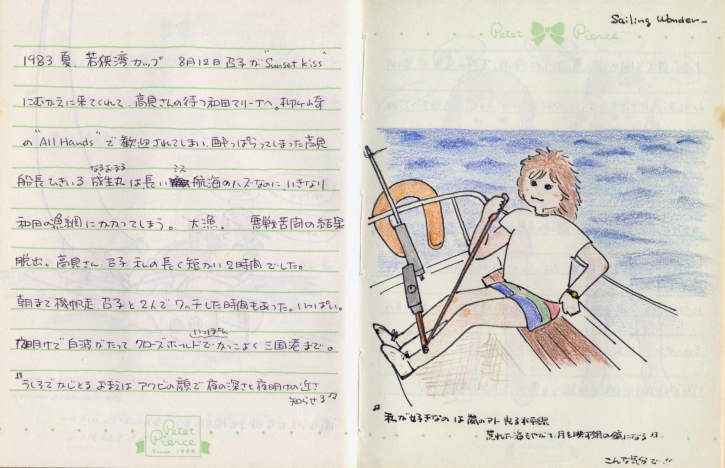 1983 夏. 若狭湾カップ 8月12日 召子が "Sunset Kiss"
にむかえに来てくれて、高見さんの待つ和田マリーナへ。
の "All Hands" で歓迎されてしまい、酔っぱらってしまった高見
なるまる
船長ひきいる 成生丸は長い 航海のハズなのに いきなり
和田の漁網にかかってしまう。 大漁。 悪戦苦闘の結果
脱出。高見さん、召子、私の長く短かい2時間でした。
朝まで機帆走、召子と2人でワッチした時間もあった。いいぱい。
夜明けで白波がたって クローズホールドでかっこよく 三国港まで。
うしろでかじとる おまえは アワビの顔で 夜の深さと夜明けの近さ
知らせる♪
Peter Pierce
Since 1988
Sailing Wonder_
Peter Pierce
私が好きなのは 嵐のアト 光る水平線
荒れた海もやがて 月を映す銀の鏡になる
こんな気分で…!!